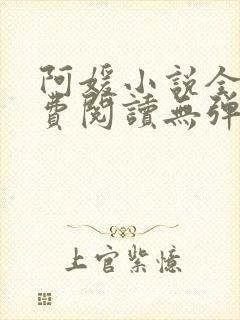 阿媛小说全
費閱讀無彈
上官紫憶